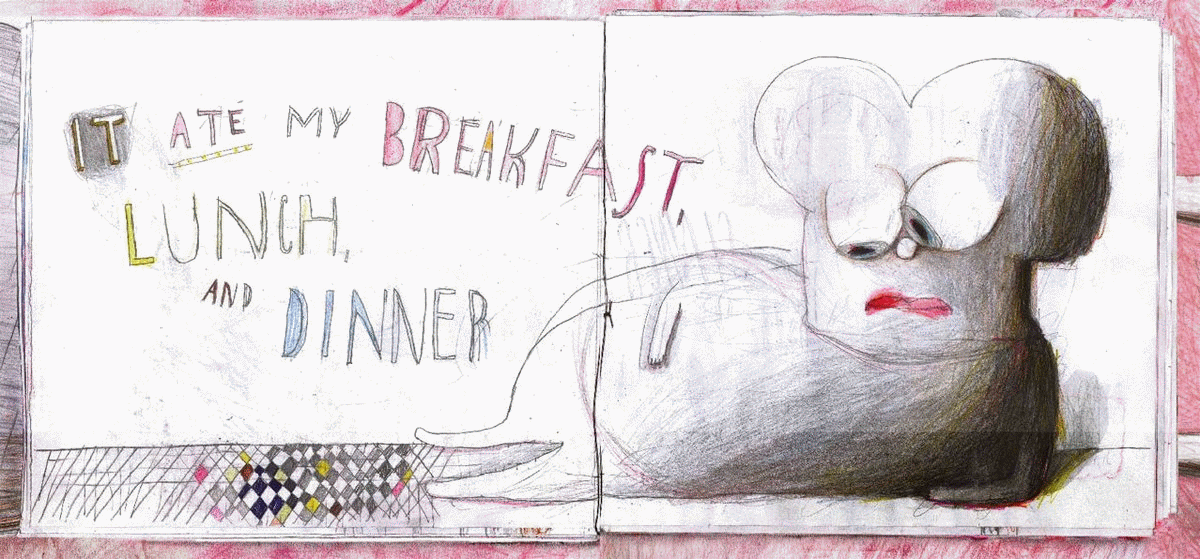 IT ATE MY BREAKFAST,
LUNCH,
AND DINNER